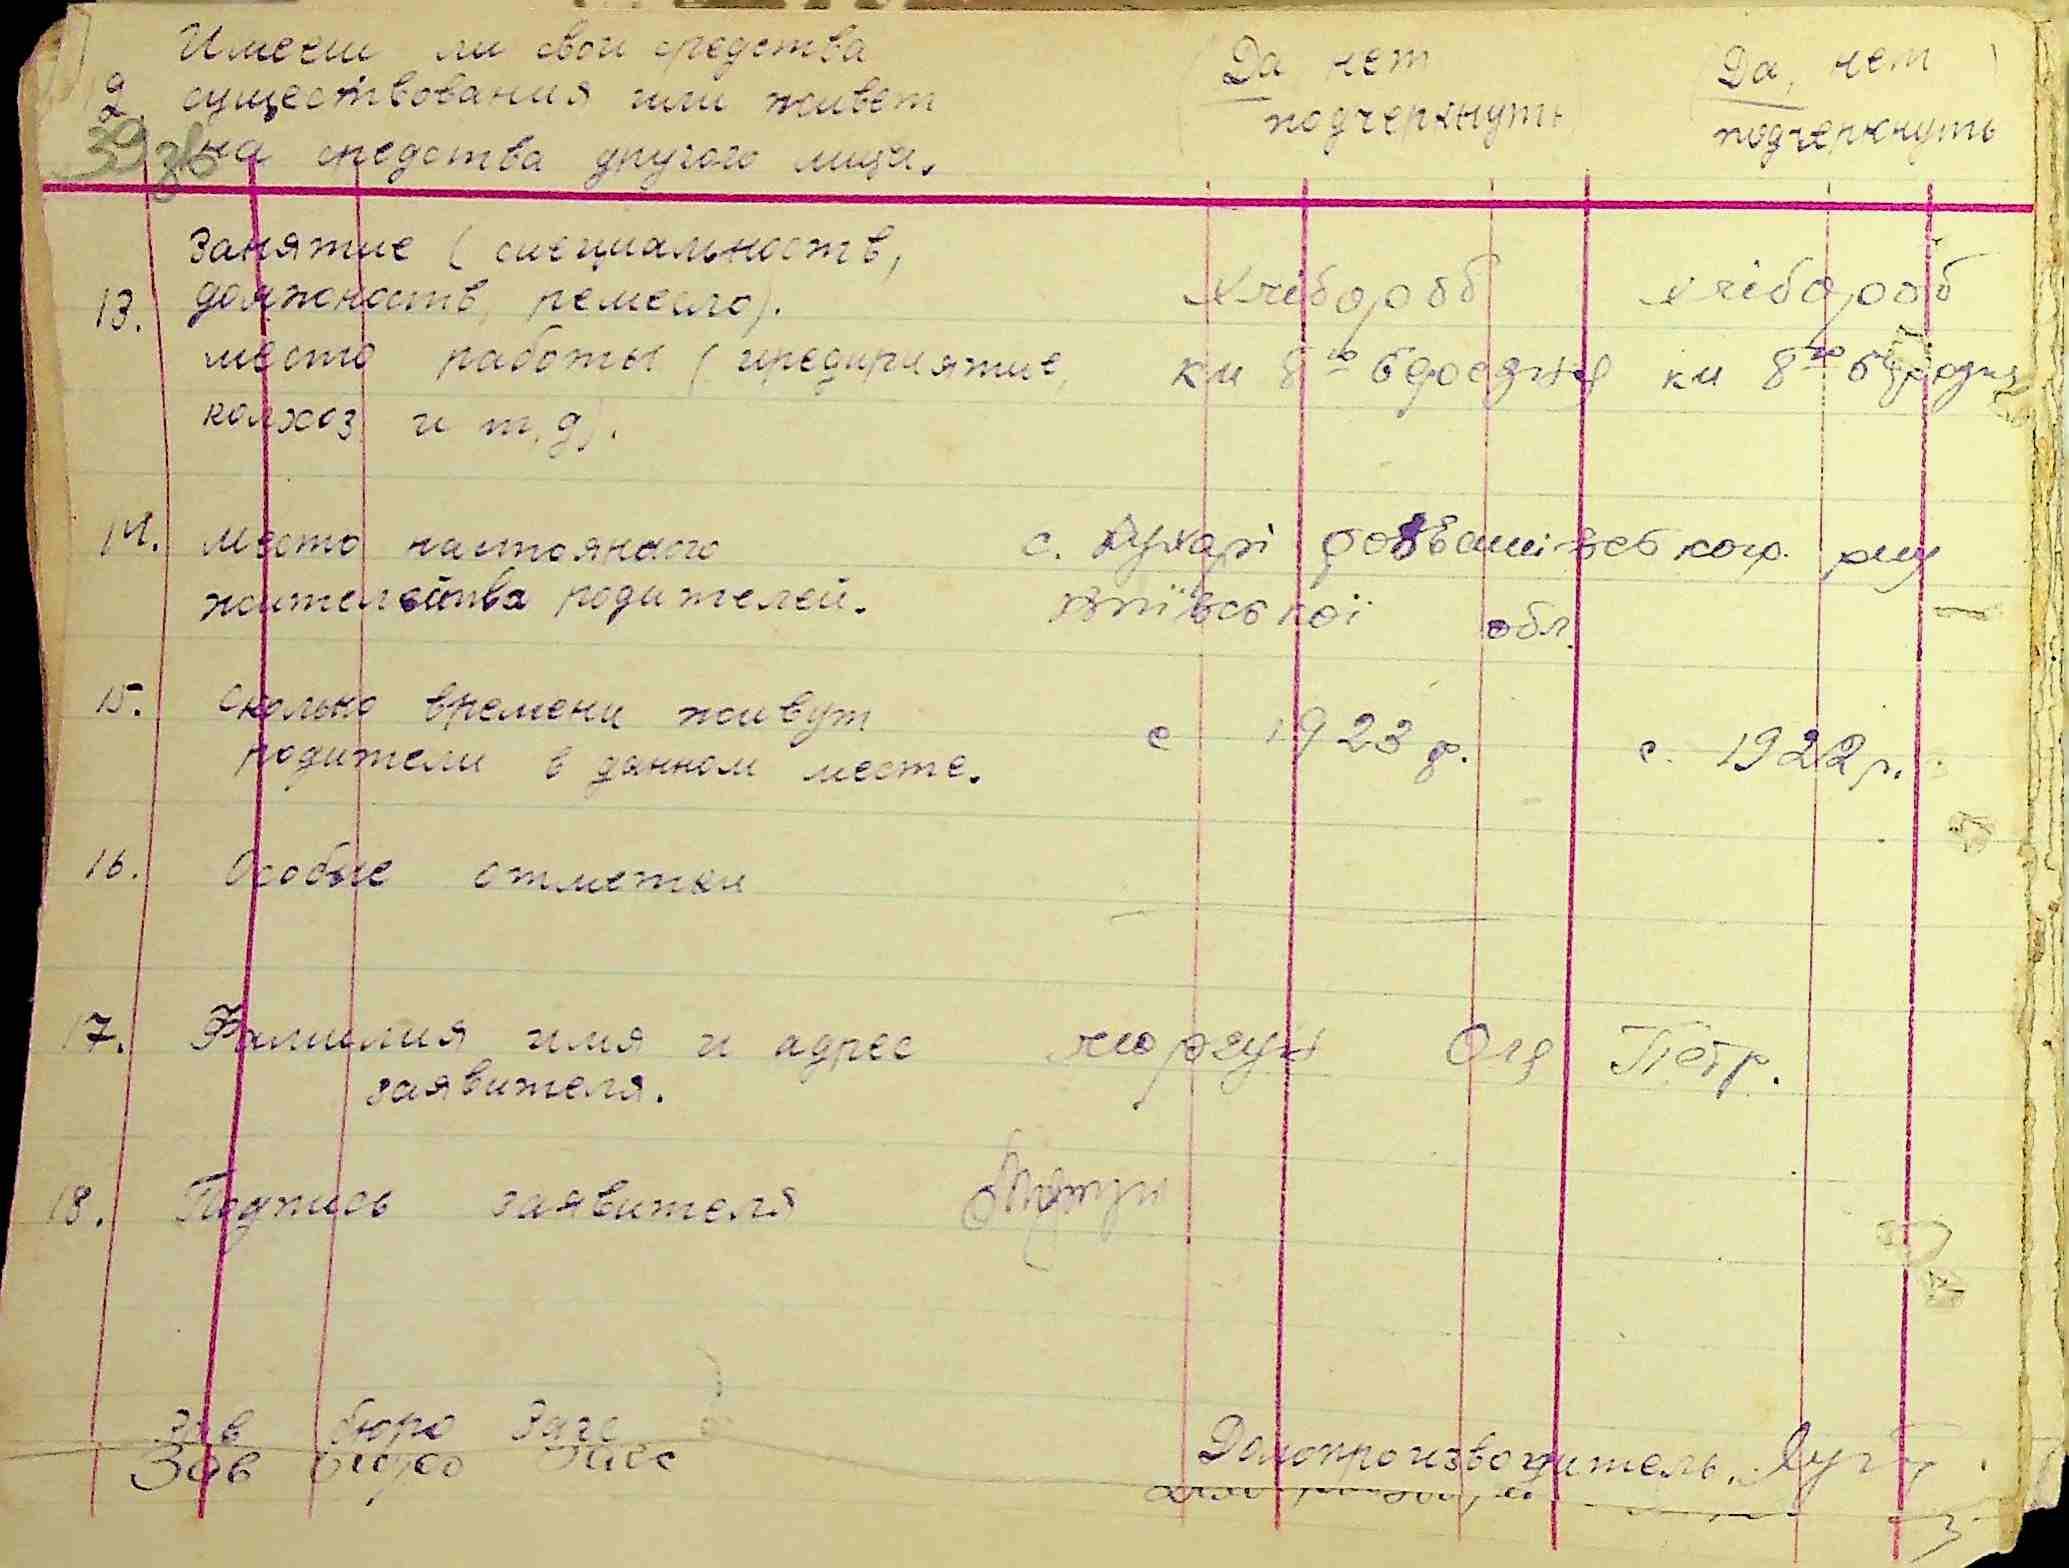 Имеет ли свои средства
12. существования или живет
на средства другого лица.
Да нет
подчеркнуть
Да, нет
подчеркнуть
39
13. Занятие (специальность,
должность, ремесло).
место работы (предприятие,
колхоз и т.д).
хлібороб
хлібороб
км 8го
км 8го
14. место настоянного
жительства родителей.
с. Кухарі
обл.
15. Сколько времени живут
родители в данном месте.
с 1923 р.
с. 1922 р.
16. Особые отметки
17. Фамилия имя и адрес
заявителя.
Ол Петр.
18. Подпись заявителя
Зав бюро Загс
Зав бюро Загс
Делопроизводитель